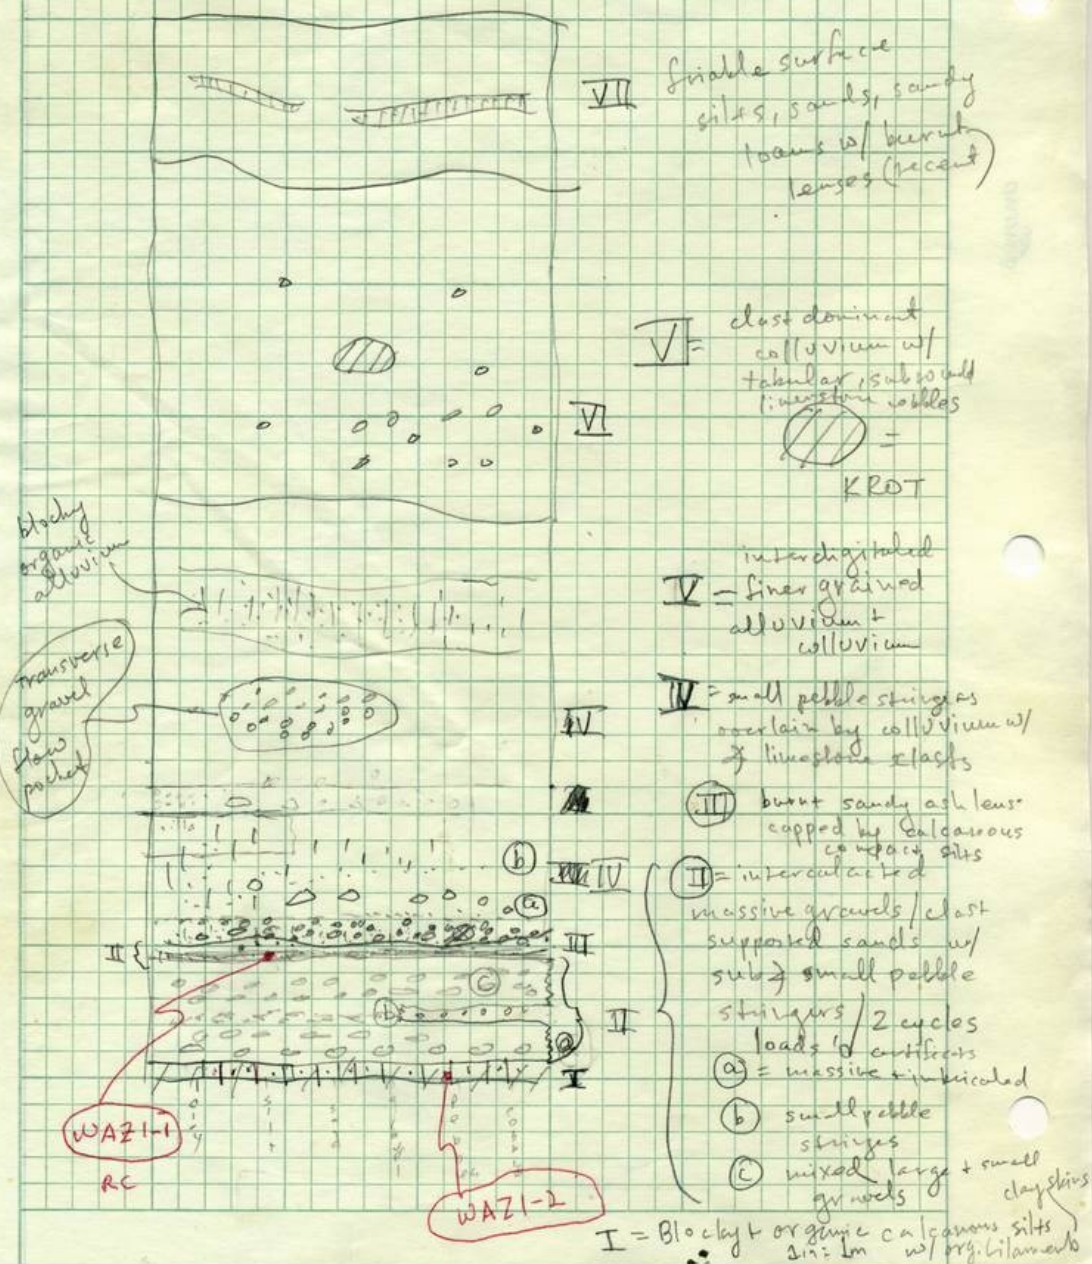 VII
friable surface
silts, sands, sandy
loams w/ burnt
lenses (recent)
V =
clast dominant
colluvium w/
tabular, subround
limestone cobbles
VI
=
KROT
blocky
organic
alluvium
V =
interdigitated
finer grained
alluvium +
colluvium
transverse
gravel
flow
pocket
IV
IV = small pebble stringers
overlain by colluvium w/
limestone clasts
III burnt sandy ash lens
capped by calcareous
compact silts
b
IV
a
II = intercalacted
massive gravels/clast
supported sands w/
small pebble
stringers / 2 cycles
loads 'o artifacts
II {
III
c
b
II
a
I
a = massive + imbricated
b small pebble
stringes
c mixed large + small
gravels
WAZ1-1
RC
WAZ1-2
clay skins
I = Blocky + organic calcareous silts
1in = 1m w/ org. filaments